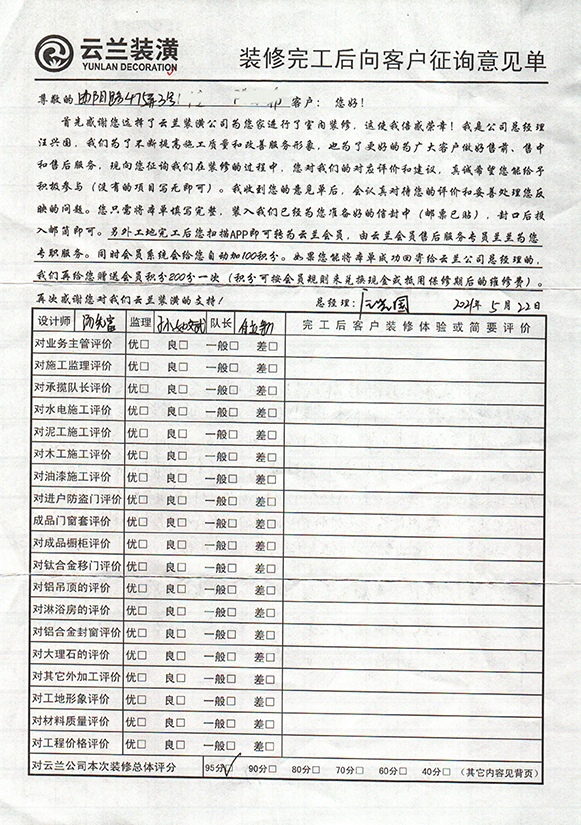 云兰装潢
YUNLAN DECORATION
装修完工后向客户征询意见单
尊敬的 客户：您好！
首先感谢您选择了云兰装潢公司为您家进行了室内装修，这使我倍感荣幸！我是公司总经理
汪兴国，我们为了不断提高施工质量和改善服务形象，也为了更好的为广大客户做好售前、售中
和售后服务，现向您征询我们在装修的过程中，您对我们的对应评价和建议，真诚希望您能给予
积极参与（没有的项目写无即可）。我收到您的意见单后，会认真对待您的评价和妥善处理您反
映的问题。您只需将本单填写完整，装入我们已经为您准备好的信封中（邮票已贴），封口后投
入邮筒即可。另外工地完工后您扫描APP即可转为云兰会员，由云兰会员售后服务专员兰兰为您
专职服务。同时会员系统会给您自动加100积分。如果您能将本单成功回寄给云兰公司总经理的，
我们再给您赠送会员积分200分一次（积分可按会员规则来兑换现金或抵用保修期后的维修费）。
再次感谢您对我们云兰装潢的支持！ 总经理：汪兴国 2021年5月22日
设计师 监理 队长 完工后客户装修体验或简要评价
对业务主管评价 优□ 良□ 一般□ 差□
对施工监理评价 优□ 良□ 一般□ 差□
对承揽队长评价 优□ 良□ 一般□ 差□
对水电施工评价 优□ 良□ 一般□ 差□
对泥工施工评价 优□ 良□ 一般□ 差□
对木工施工评价 优□ 良□ 一般□ 差□
对油漆施工评价 优□ 良□ 一般□ 差□
对进户防盗门评价 优□ 良□ 一般□ 差□
成品门窗套评价 优□ 良□ 一般□ 差□
对成品橱柜评价 优□ 良□ 一般□ 差□
对钛合金移门评价 优□ 良□ 一般□ 差□
对铝吊顶的评价 优□ 良□ 一般□ 差□
对淋浴房的评价 优□ 良□ 一般□ 差□
对铝合金封窗评价 优□ 良□ 一般□ 差□
对大理石的评价 优□ 良□ 一般□ 差□
对其它外加工评价 优□ 良□ 一般□ 差□
对工地形象评价 优□ 良□ 一般□ 差□
对材料质量评价 优□ 良□ 一般□ 差□
对工程价格评价 优□ 良□ 一般□ 差□
对云兰公司本次装修总体评分 95分☑ 90分□ 80分□ 70分□ 60分□ 40分□（其它内容见背页）